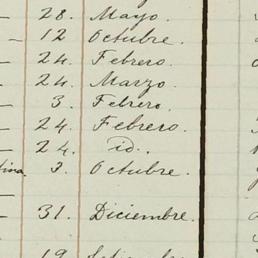 — 28. Mayo.
— 12 Octubre.
— 24. Febrero.
24. Marzo.
— 3. Febrero.
— 24. Febrero.
— 24. id.
3. Octubre.
— 31. Diciembre.
19